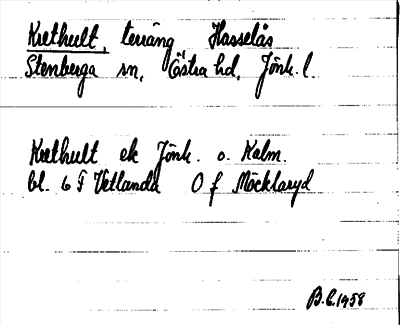 Krethult, terräng Hasselås
Stenberga sn, Östra hd, Jönk. l.
Krethult ek Jönk. o. Kalm.
bl. 6 F Vetlanda O f Möcklaryd
B.L. 1958